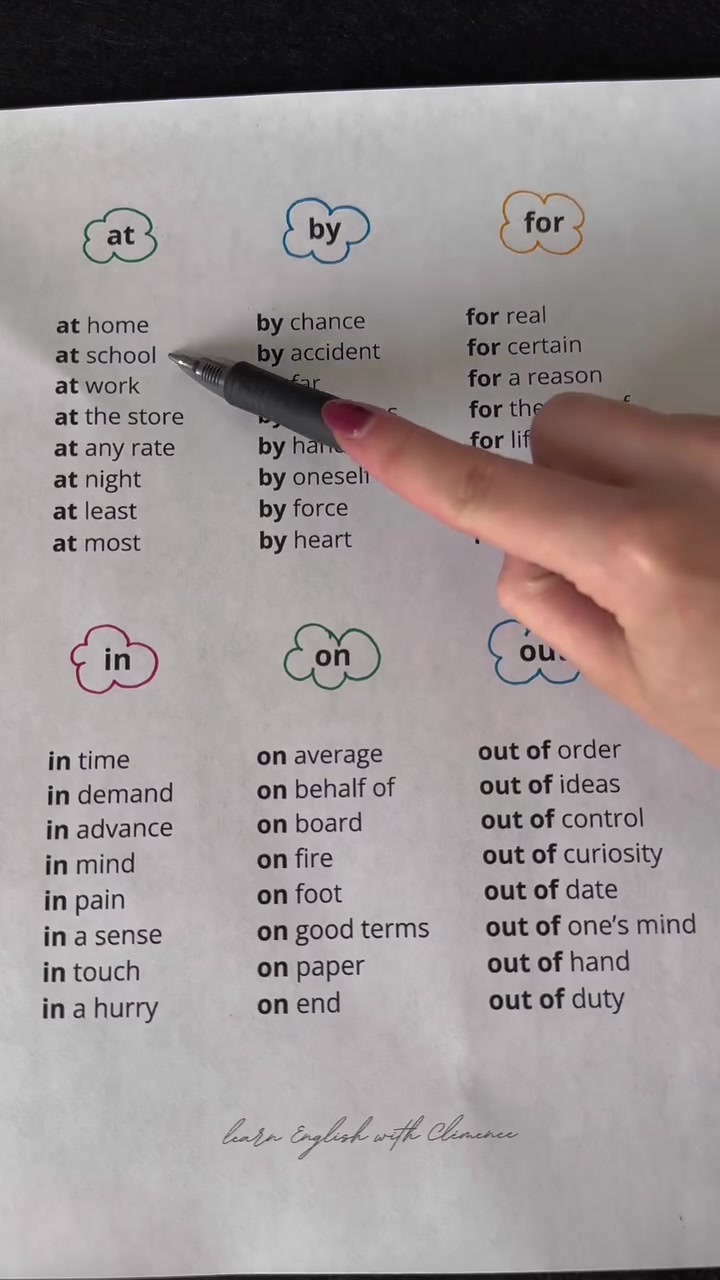 at
at home
at school
at work
at the store
at any rate
at night
at least
at most
by
by chance
by accident
far
by
by
by oneself
by force
by heart
for
for real
for certain
for a reason
for
for
in
in time
in demand
in advance
in mind
in pain
in a sense
in touch
in a hurry
on
on average
on behalf of
on board
on fire
on foot
on good terms
on paper
on end
out of order
out of ideas
out of control
out of curiosity
out of date
out of one’s mind
out of hand
out of duty
learn English with Clémence